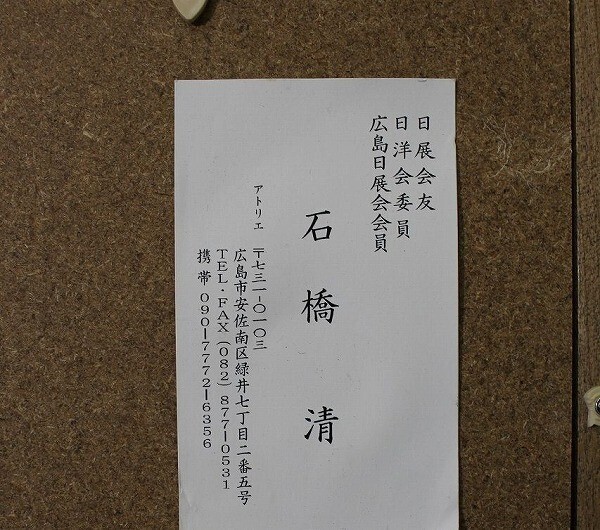 日展会友
日洋会委員
広島日展会会員
石橋清
アトリエ
〒七三一-〇一〇三
広島市安佐南区緑井七丁目二番五号
TEL・FAX(082)877-0531
携帯 090-7772-6356